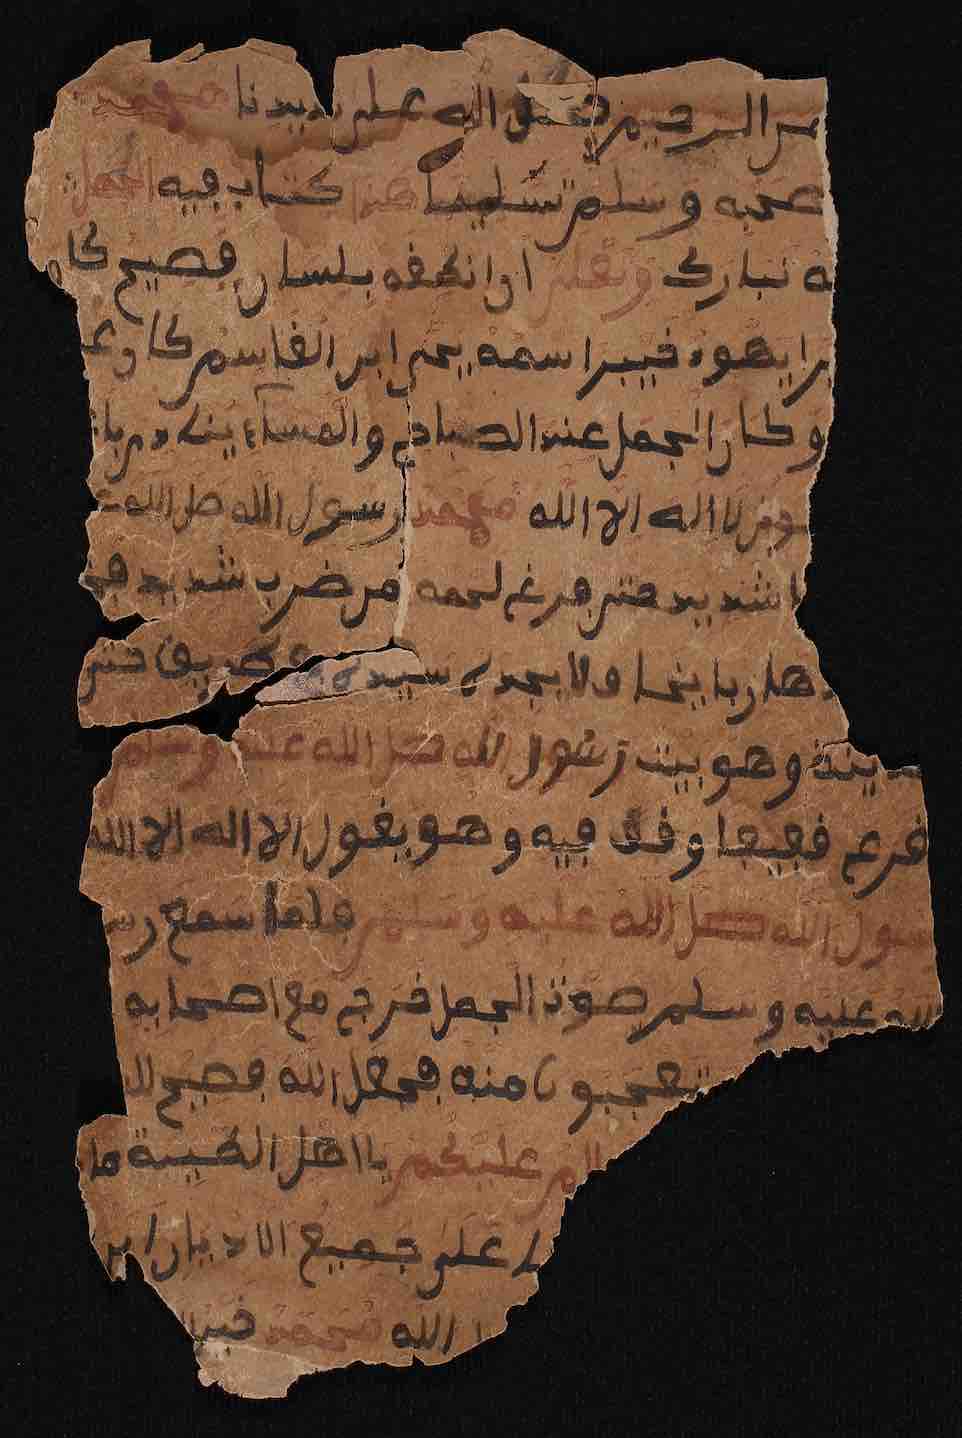 من الرحيم صلى الله على سيدنا محمد
صحبه وسلم تسليما هذا كتاب فيه الجمل
ه تبارك وتعلى ان انطقه بلسان فصيح كا
من ايهود خيبر اسمه يحي ابن القاسم كان
وكان الجمل عند الصباح والمساء ينادي با
لا اله الا الله محمد رسول الله صل الله
شديد حتى لحمه من ضرب شديد
هاربا ولا يجد سيده طريق حتى
مدينة وهو بيت رسول الله صل الله عليه وسلم
فيه وهو يقول الا اله الا الله
سول الله صل الله عليه وسلم فلما سمع رس
الله عليه وسلم صوت الجمل خرج مع اصحابه
يتعجبون منه فجعل الله فصيح لل
لام عليكم يا اهل الطيبة ما
على جميع الاديان
الله محمد خير